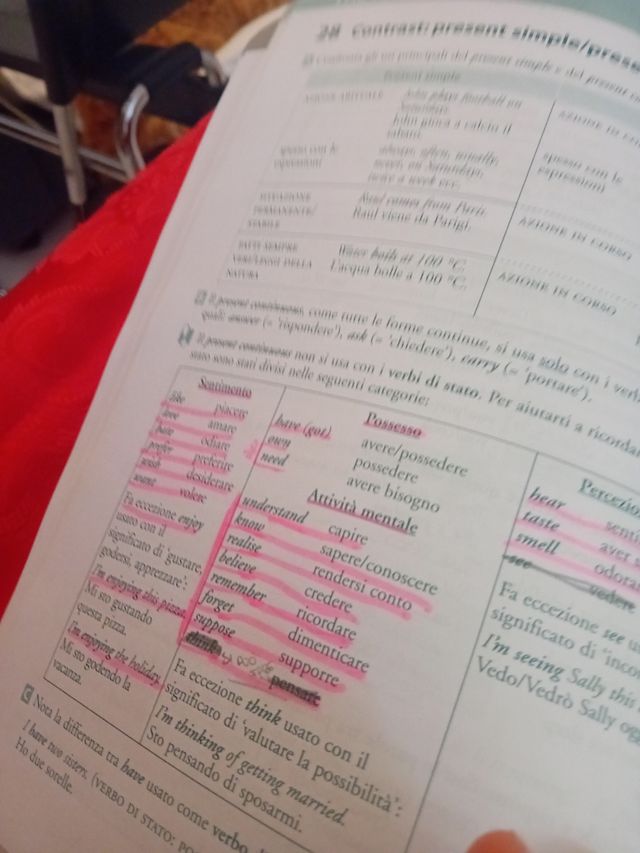 28 Contrast: present simple/prese
Confronta gli usi principali del present simple e del present co
Present simple
AZIONE ABITUALE John plays football on
Saturdays.
John gioca a calcio il
sabato.
spesso con le
espressioni
always, often, usually,
never, on Saturdays,
once a week ecc.
SITUAZIONE
PERMANENTE/
STABILE
Raul comes from Paris.
Raul viene da Parigi.
FATTI SEMPRE
VERI/LEGGI DELLA
NATURA
Water boils at 100 °C.
L'acqua bolle a 100 °C.
AZIONE IN
spesso con le
espressioni
AZIONE IN CORSO
AZIONE IN CORSO
Il present continuous, come tutte le forme continue, si usa solo con i
quali: answer (= 'rispondere'), ask (= 'chiedere'), carry (= 'portare').
Il present continuous non si usa con i verbi di stato. Per aiutarti a ricordar
stato sono stati divisi nelle seguenti categorie:
Sentimento
like piacere
love amare
hate odiare
prefer preferire
wish desiderare
want volere
Fa eccezione enjoy
usato con il
significato di 'gustare,
godersi, apprezzare'.
I'm enjoying this pizza.
Mi sto gustando
questa pizza.
I'm enjoying the holiday.
Mi sto godendo la
vacanza.
Possesso
have (got) avere/possedere
own possedere
need avere bisogno
Attività mentale
understand capire
know sapere/conoscere
realise rendersi conto
believe credere
remember ricordare
forget dimenticare
suppose supporre
think pensare
Fa eccezione think usato con il
significato di 'valutare la possibilità':
I'm thinking of getting married.
Sto pensando di sposarmi.
Percezio
hear senti
taste aver s
smell odora
see vedere
Fa eccezione see u
significato di 'inco
I'm seeing Sally this
Vedo/Vedrò Sally og
C Nota la differenza tra have usato come verbo
I have two sisters. (VERBO DI STATO: PO
Ho due sorelle.